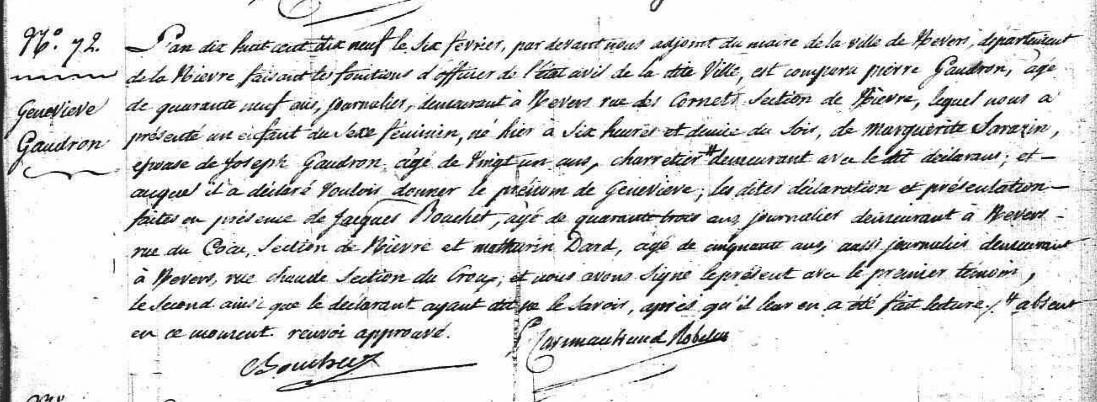 N.o 72.
Genevieve
Gaudron
L'an dix huit cent dix neuf le Six février, par devant nous adjoint du maire de la ville de Nevers, département
de la Nievre faisant les fonctions d'officier de l'état civil de la dite Ville, est comparu pierre Gaudron, âgé
de quarante neuf ans, journalier, demeurant à Nevers rue des Cornets Section de Nievre, lequel nous a
présenté un enfant du Sexe féminin, né hier a Six heures et demie du Soir, de Marguerite Sarazin,
épouse de Joseph Gaudron âgé de Vingt un ans, charretier # demeurant avec le dt déclarant; et
auquel il a déclaré Vouloir donner le prénom de Genevieve; les dites déclaration et présentation
faites en présence de Jacques Bouchet, âgé de quarante trois ans journalier demeurant à Nevers
rue du Section de Nievre et mathurin Dard, âgé de cinquante ans, aussi journalier demeurant
à Nevers, rue chaude Section du Croux, et nous avons Signé le présent avec le premier témoin,
le Second ainsi que le déclarant ayant dit ne le Savoir, après qu'il leur en a été fait lecture /. # absent
en ce moment renvoi approuvé.
Bouchet